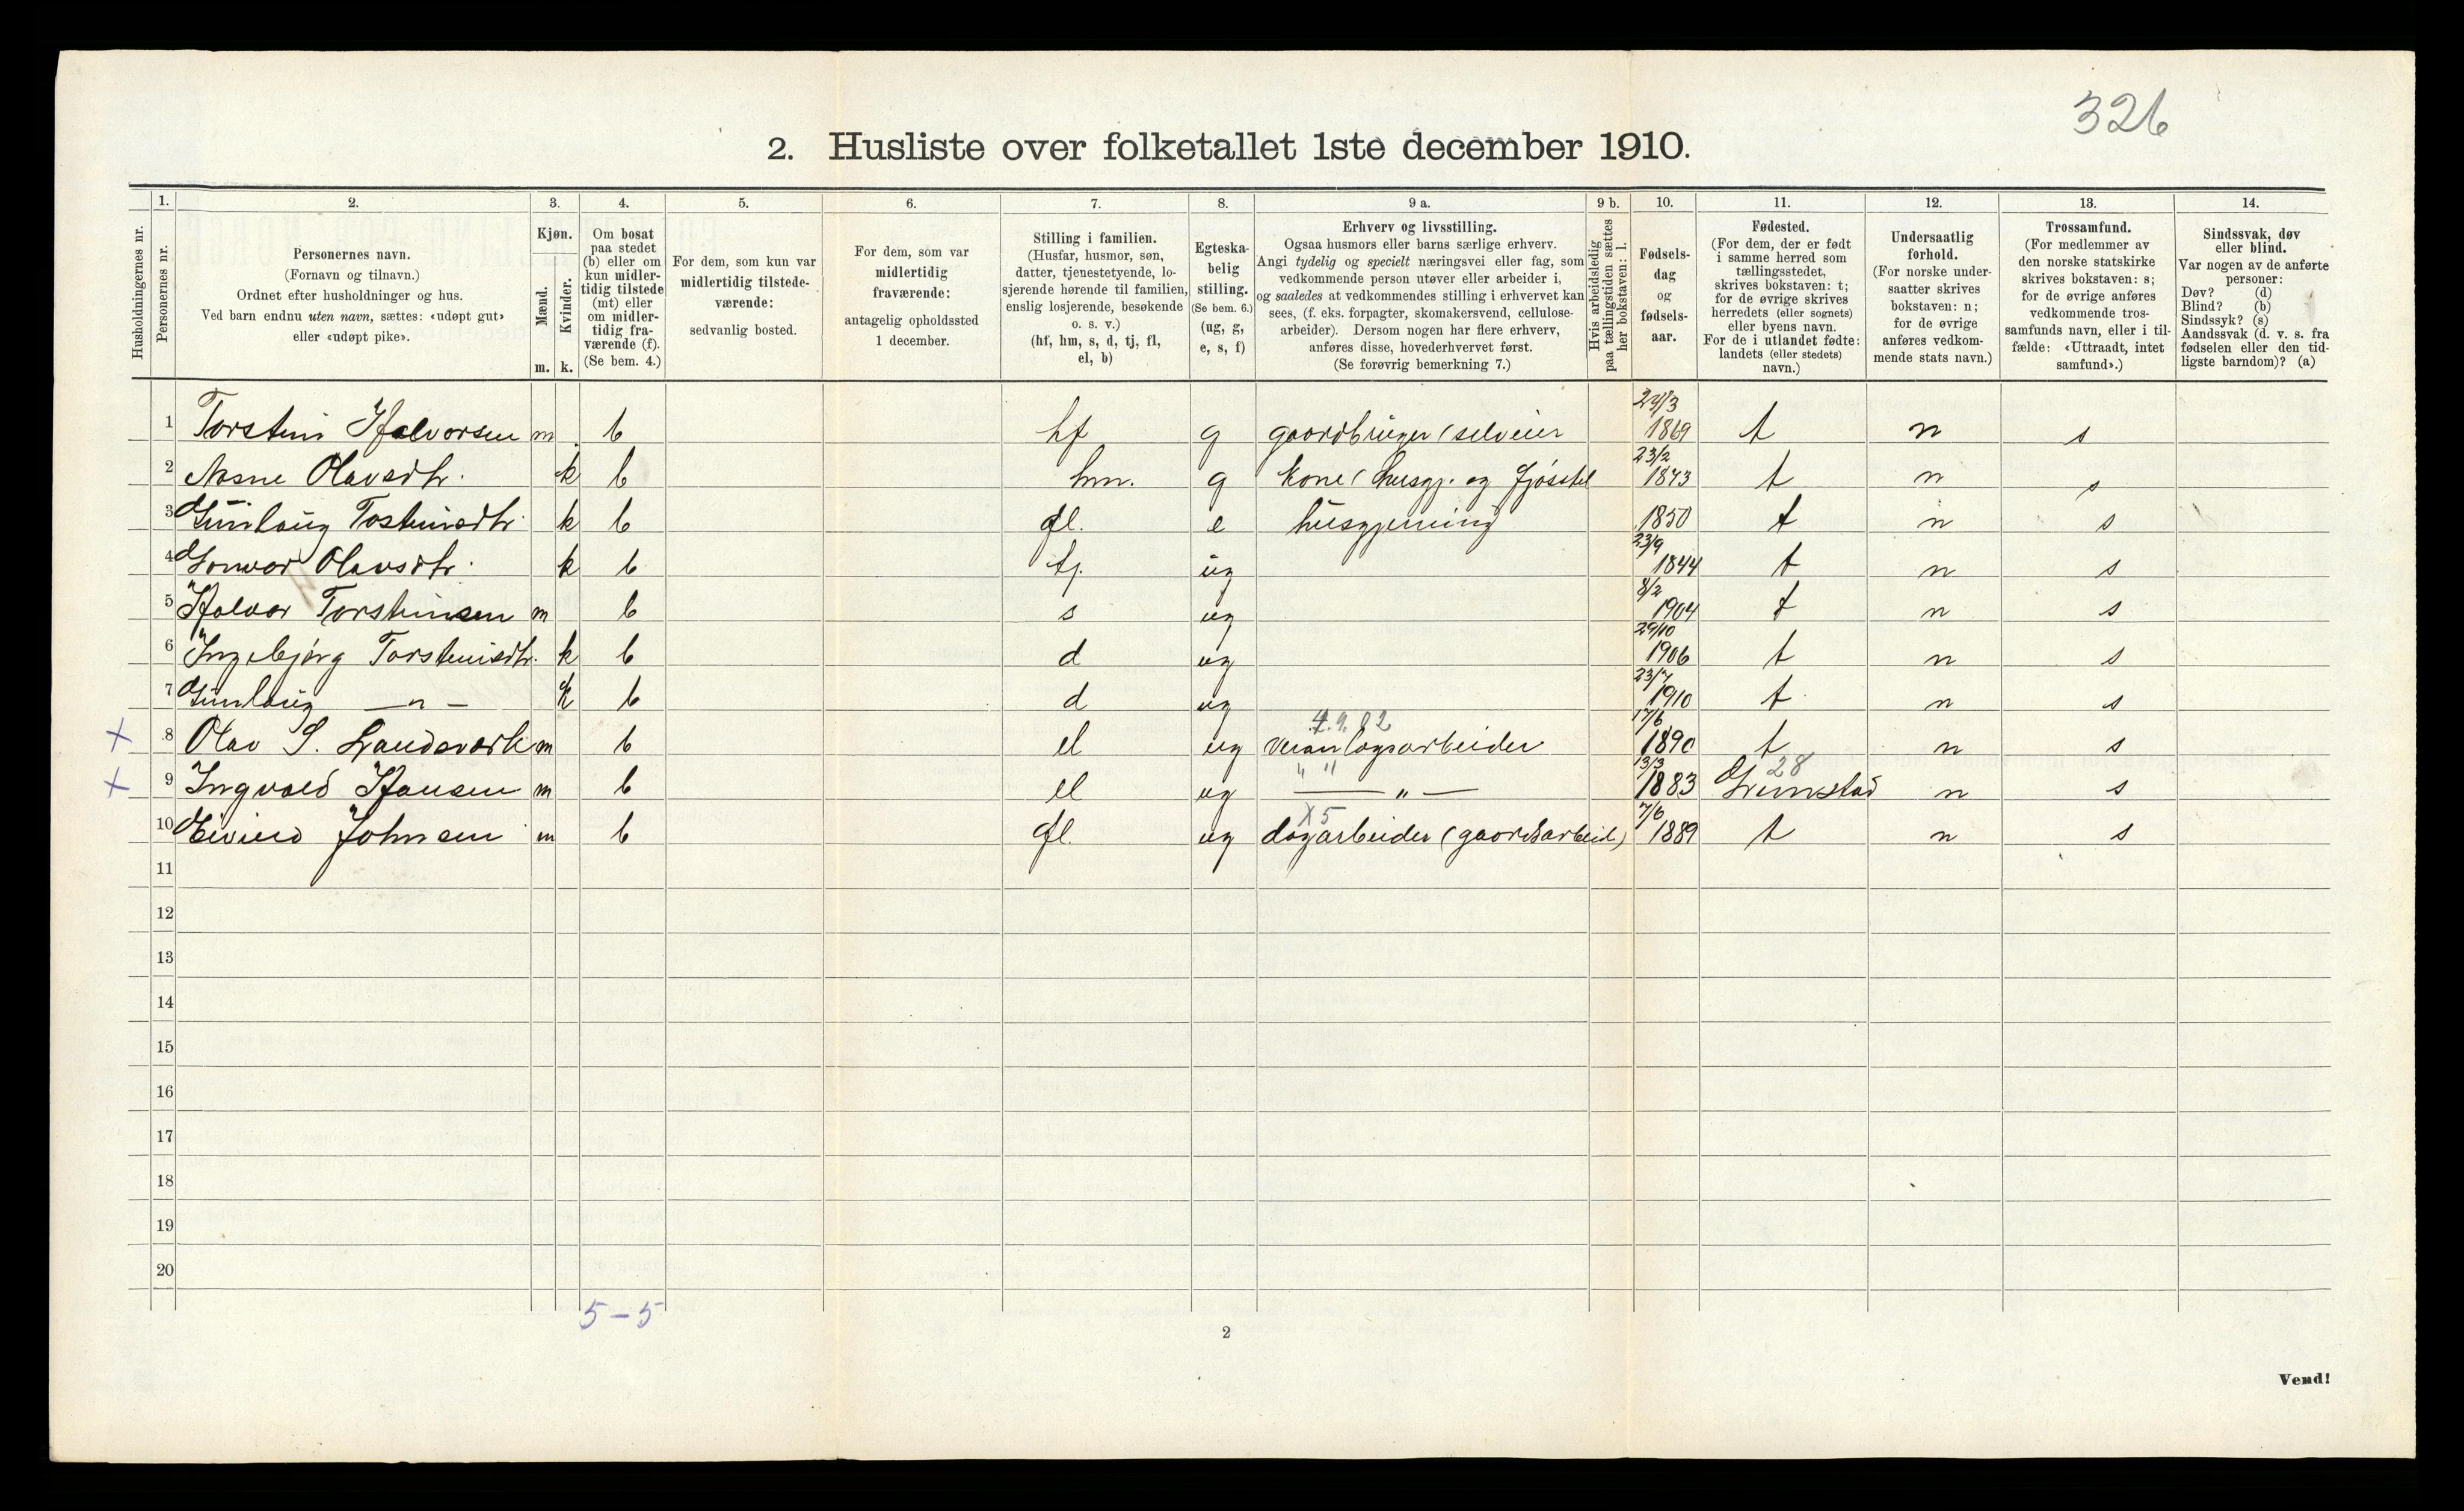 326
2. Husliste over folketallet 1ste december 1910.
Husholdningernes nr.
1.
Personernes nr.
2.
Personernes navn.
(Fornavn og tilnavn.)
Ordnet efter husholdninger og hus.
Ved barn endnu uten navn, sættes: «udøpt gut»
eller «udøpt pike».
3.
Kjøn.
Mænd.
Kvinder.
m. k.
4.
Om bosat
paa stedet
(b) eller om
kun midler-
tidig tilstede
(mt) eller
om midler-
tidig fra-
værende (f).
(Se bem. 4.)
5.
For dem, som kun var
midlertidig tilstede-
værende:
sedvanlig bosted.
6.
For dem, som var
midlertidig
fraværende:
antagelig opholdssted
1 december.
7.
Stilling i familien.
(Husfar, husmor, søn,
datter, tjenestetyende, lo-
sjerende hørende til familien,
enslig losjerende, besøkende
o. s. v.)
(hf, hm, s, d, tj, fl,
el, b)
8.
Egteska-
belig
stilling.
(Se bem. 6.)
(ug, g,
e, s, f)
9 a.
Erhverv og livsstilling.
Ogsaa husmors eller barns særlige erhverv.
Angi tydelig og specielt næringsvei eller fag, som
vedkommende person utøver eller arbeider i,
og saaledes at vedkommendes stilling i erhvervet kan
sees, (f. eks. forpagter, skomakersvend, cellulose-
arbeider). Dersom nogen har flere erhverv,
anføres disse, hovederhvervet først.
(Se forøvrig bemerkning 7.)
9 b.
Hvis arbeidsledig
paa tællingstiden sættes
her bokstaven: l.
10.
Fødsels-
dag
og
fødsels-
aar.
11.
Fødested.
(For dem, der er født
i samme herred som
tællingsstedet,
skrives bokstaven: t;
for de øvrige skrives
herredets (eller sognets)
eller byens navn.
For de i utlandet fødte:
landets (eller stedets)
navn.)
12.
Undersaatlig
forhold.
(For norske under-
saatter skrives
bokstaven: n;
for de øvrige
anføres vedkom-
mende stats navn.)
13.
Trossamfund.
(For medlemmer av
den norske statskirke
skrives bokstaven: s;
for de øvrige anføres
vedkommende tros-
samfunds navn, eller i til-
fælde: «Uttraadt, intet
samfund».)
14.
Sindssvak, døv
eller blind.
Var nogen av de anførte
personer:
Døv? (d)
Blind? (b)
Sindssyk? (s)
Aandssvak (d. v. s. fra
fødselen eller den tid-
ligste barndom)? (a)
1 Torstein Halvorsen m b hf g gaardbruger (selveier 24/3 1869 t n s
2 Aasne Olavsdtr. k b hm. g kone (husgj. og fjøsstel 23/2 1873 t n s
3 Gunlaug Tosteinsdtr. k b fl. e husgjerning 1850 t n s
4 Gonvor Olavsdtr. k b tj. ug 23/9 1844 t n s
5 Halvor Torsteinsen m b s ug 8/2 1904 t n s
6 Ingebjørg Torsteinsdtr. k b d ug 29/10 1906 t n s
7 Gunlaug — " — k b d ug 23/7 1910 t n s
4.9.82
x 8 Olav S. Landsverk m b el ug veianlægsarbeider 17/6 1890 t n s
" " 28
x 9 Ingvald Hansen m b el ug — " — 13/3 1883 Grimstad n s
X5
10 Eivind Johnsen m b fl. ug dagarbeider (gaardsarbeid) 7/6 1889 t n s
11
12
13
14
15
16
17
18
19
20
5 - 5
2
Vend!